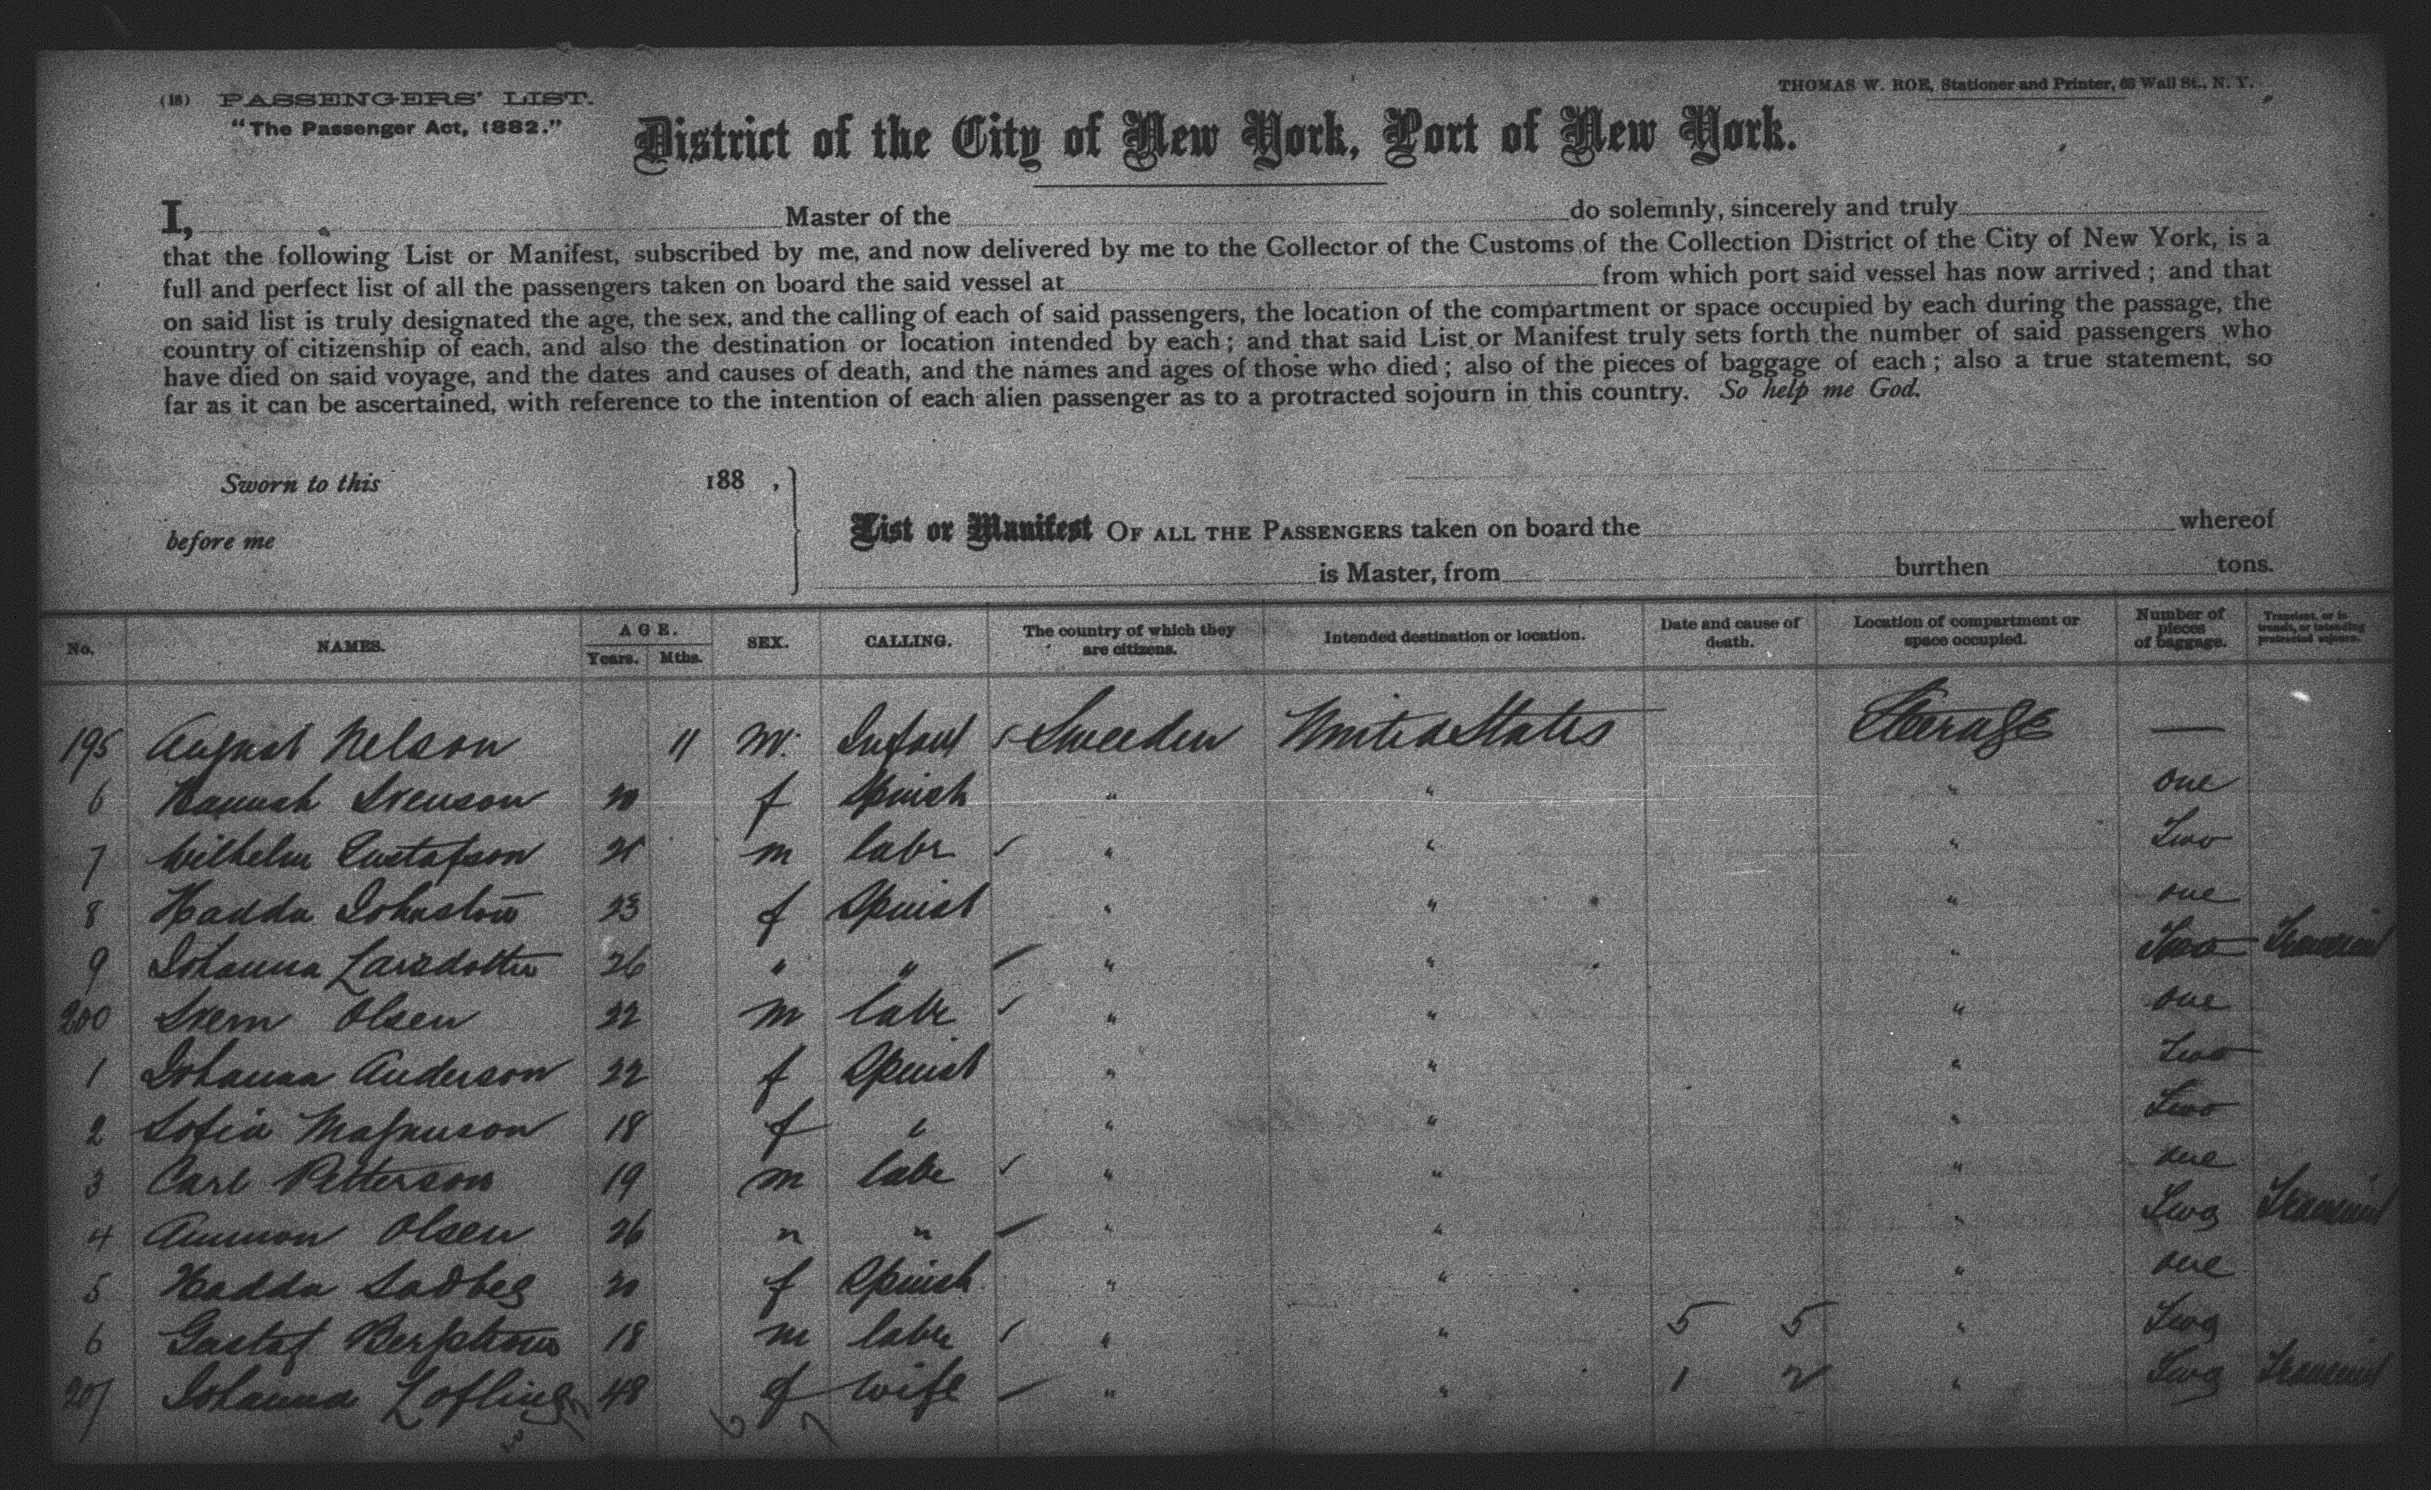 (18) PASSENGERS' LIST.
THOMAS W. ROE, Stationer and Printer, 68 Wall St., N. Y.
"The Passenger Act, 1882."
District of the City of New York, Port of New York.
I, Master of the do solemnly, sincerely and truly
that the following List or Manifest, subscribed by me, and now delivered by me to the Collector of the Customs of the Collection District of the City of New York, is a
full and perfect list of all the passengers taken on board the said vessel at from which port said vessel has now arrived; and that
on said list is truly designated the age, the sex, and the calling of each of said passengers, the location of the compartment or space occupied by each during the passage, the
country of citizenship of each, and also the destination or location intended by each; and that said List or Manifest truly sets forth the number of said passengers who
have died on said voyage, and the dates and causes of death, and the names and ages of those who died; also of the pieces of baggage of each; also a true statement, so
far as it can be ascertained, with reference to the intention of each alien passenger as to a protracted sojourn in this country. So help me God.
Sworn to this 188 ,
before me
List or Manifest OF ALL THE PASSENGERS taken on board the whereof
is Master, from burthen tons.
No. NAMES. AGE. Years. Mths. SEX. CALLING. The country of which they are citizens. Intended destination or location. Date and cause of death. Location of compartment or space occupied. Number of pieces of baggage. Transient, or in transit, or intending protracted sojourn.
195 August Nelson 11 m. Infant Sweden United States Steerage —
6 Hannah Svenson 20 f Spinst " " " one
7 Wilhelm Gustafson 21 m labr " " " Two
8 Hadda Johnston 23 f Spinst " " " one
9 Johanna Larsdotter 26 " " " " " Two Transient
200 Svern Olsen 22 m labr " " " one
1 Johanna Anderson 22 f Spinst " " " Two
2 Sofia Magnuson 18 f " " " " Two
3 Carl Petterson 19 m labr " " " one
4 Ammon Olsen 26 " " " " " Two Transient
5 Hadda Sadbeg 20 f Spinst " " " one
6 Gustaf Bergstrom 18 m labr " " 5 5 " Two
207 Johanna Lofling 48 f wife " " 1 2 " Two Transient
6 7